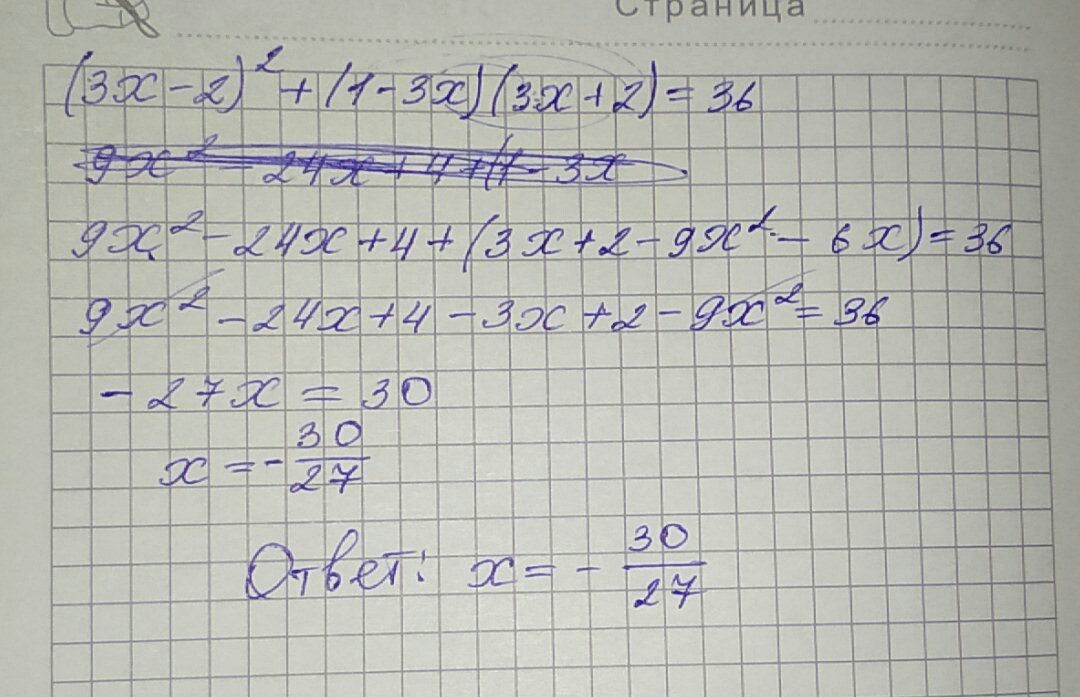 Страница
(3x-2)² + (1-3x)(3x+2) = 36
9x² - 24x + 4 + (1 - 3x
9x² - 24x + 4 + (3x + 2 - 9x² - 6x) = 36
9x² - 24x + 4 - 3x + 2 - 9x² = 36
- 27x = 30
x = - 30/27
Ответ: x = - 30/27